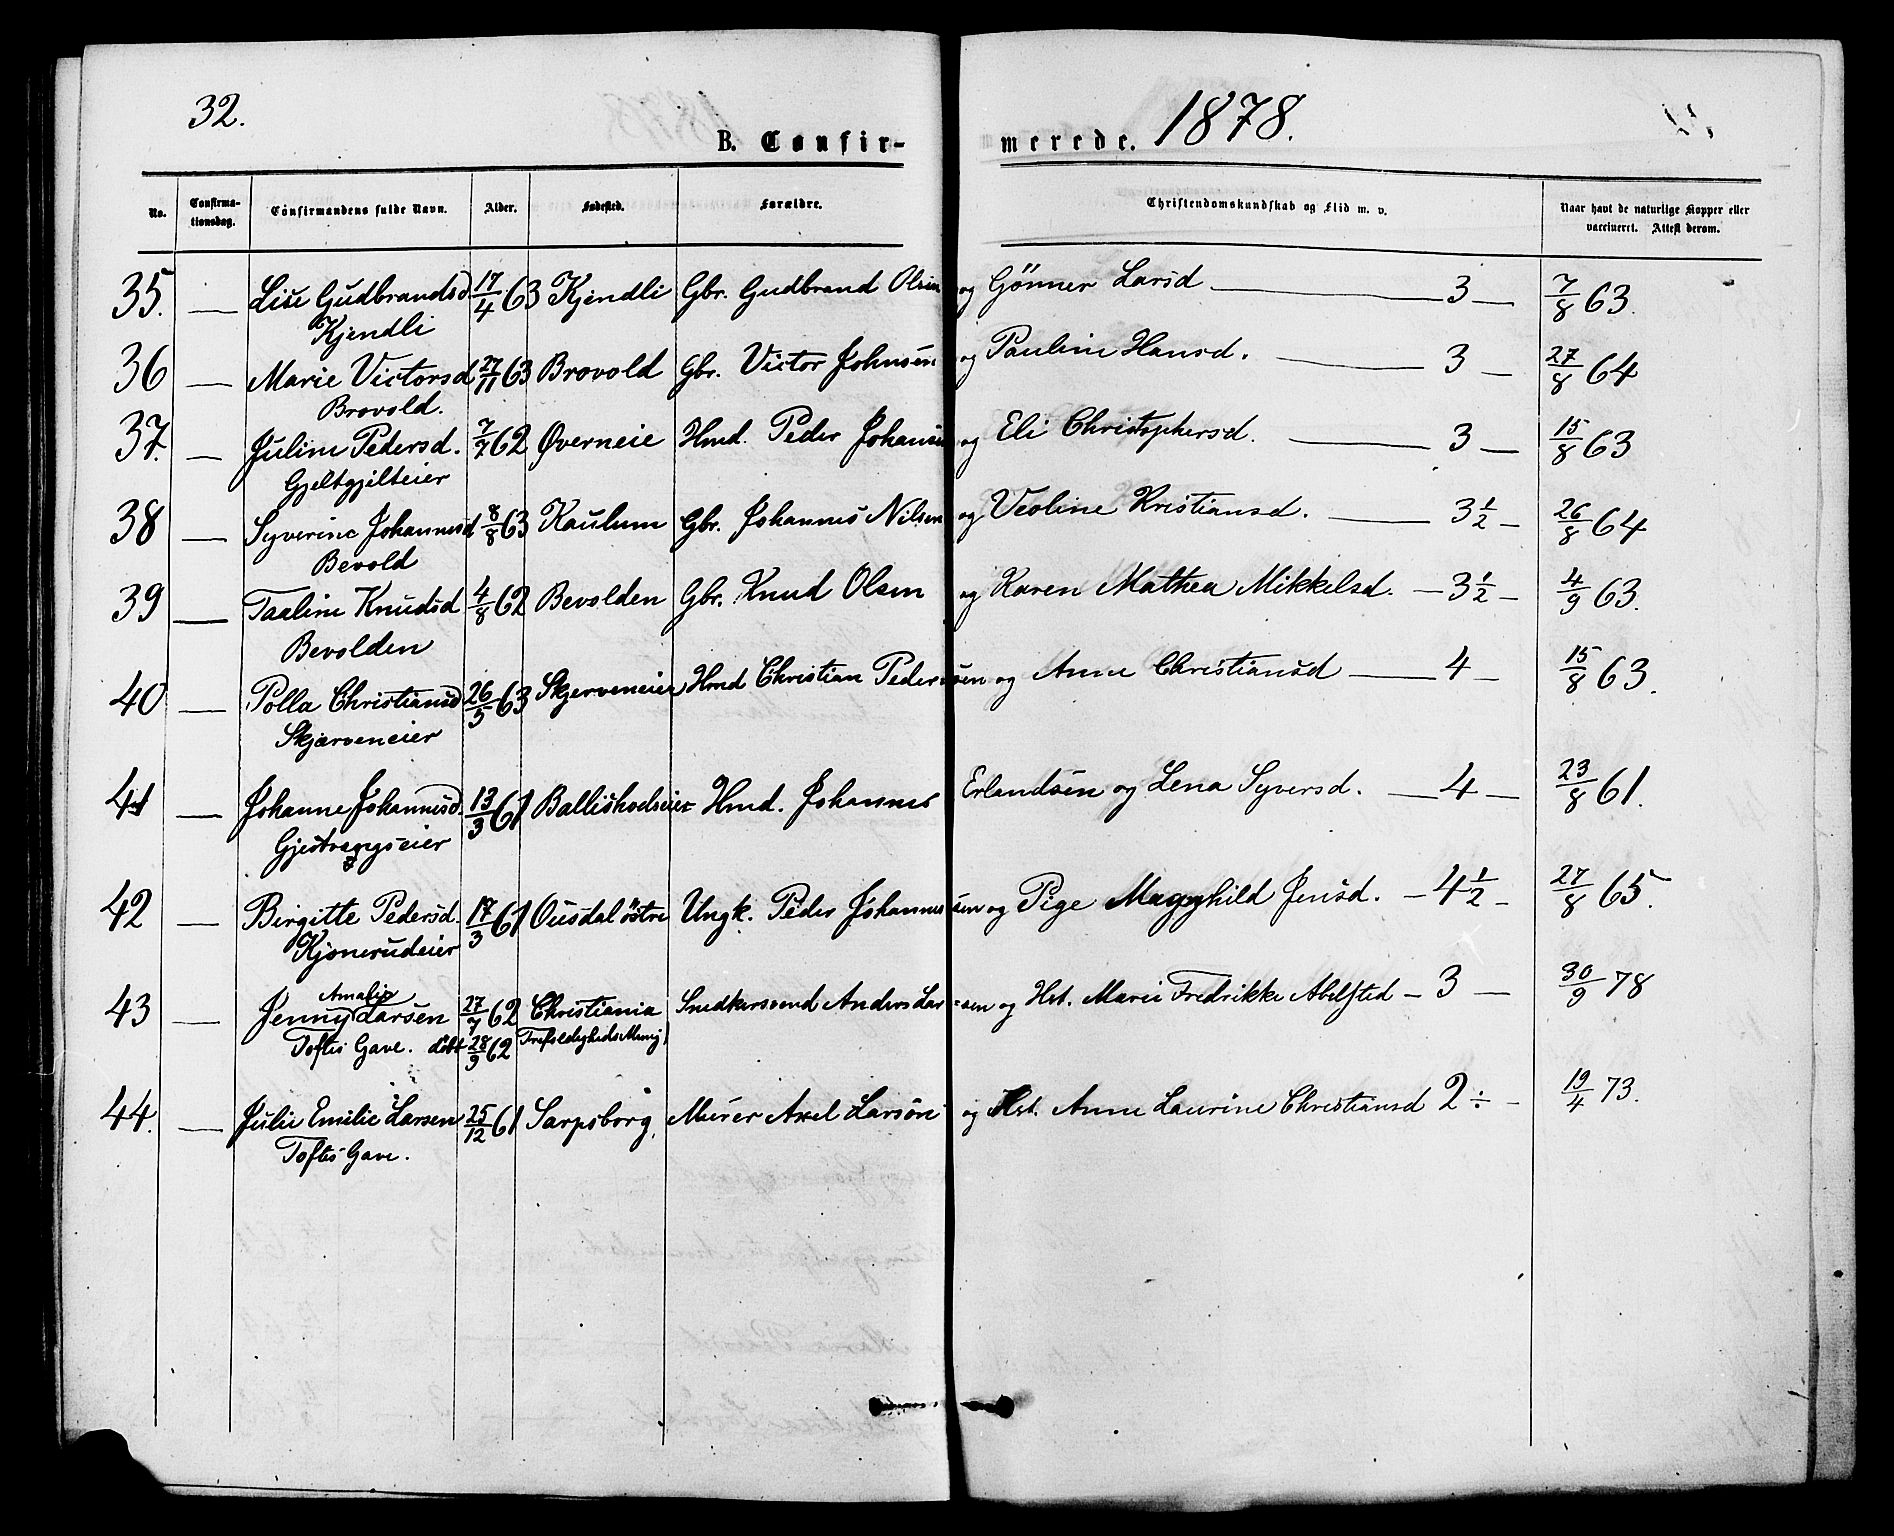 32.
B. Confirmerede. 1878.
No. Confirmationsdag. Confirmandens fulde Navn. Alder. Fødested. Forældre. Christendomskundskab og Flid m. v. Naar havt de naturlige Kopper eller vaccineret. Attest derom.
35. — Lise Gudbrandsd 17/4 63 Kjendli Gbr. Gudbrand Olsen og Gönner Larsd — 3 — 7/8 63.
Kjendli
36 — Marie Victorsd 27/11 63 Brovold Gbr. Victor Johnsen og Pauline Hansd. — 3 — 27/8 64
Brovold.
37. — Juline Pedersd. 7/7 62 Øverneie Hmd. Peder Johansen og Eli Christophersd. — 3 — 15/8 63
Gjeltgjilteier
38 — Syverine Johannesd 8/8 63 Kaulum Gbr. Johannes Nilsen og Veoline Kristiansd. — 3 1/2 — 26/8 64
Bevold
39 — Taaline Knudsd 4/8 62 Bevolden Gbr. Knud Olsen og Karen Mathea Mikkelsd. — 3 1/2 — 4/9 63.
Bevolden
40 — Polla Christiansd 26/5 63 Skjerveneier Hmd Christian Pedersen og Anne Christiansd — 4 — 15/8 63.
Skjærveneier
41 — Johanne Johannesd. 13/3 61 Ballishoelseier Hmd. Johannes Erlandsen og Lena Syversd. — 4 — 23/8 61.
Gjestvangseier
42 — Birgitte Pedersd. 17/3 61 Ousdal östre Ungk. Peder Johannessen og Pige Magnhild Jensd. — 4 1/2 — 27/8 65.
Kjonerudeier
Amalie
43 — Jenny Larsen 27/7 62 Christiania Snedkersvend Anders Larsen og Hst. Marie Fredrikke Abelsted — 3 — 30/9 78
Toftes Gave. döbt 28/9 62 Trefoldigheds Menig)
44. — Julie Emilie Larsen 25/12 61 Sarpsborg, Murer Axel Larsen og Hst. Anne Laurine Christiansd 2 ÷ — 19/4 73.
Toftes Gave.